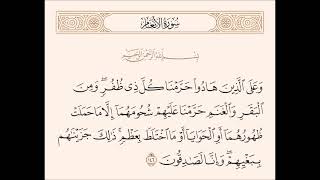 سُورَةُ الْأَنْعَامِ
بِسْمِ اللَّهِ الرَّحْمَٰنِ الرَّحِيمِ
وَعَلَى الَّذِينَ هَادُوا حَرَّمْنَا كُلَّ ذِي ظُفُرٍ ۖ وَمِنَ
الْبَقَرِ وَالْغَنَمِ حَرَّمْنَا عَلَيْهِمْ شُحُومَهُمَا إِلَّا مَا حَمَلَتْ
ظُهُورُهُمَا أَوِ الْحَوَايَا أَوْ مَا اخْتَلَطَ بِعَظْمٍ ۚ ذَٰلِكَ جَزَيْنَاهُم
بِبَغْيِهِمْ ۖ وَإِنَّا لَصَادِقُونَ ١٤٦